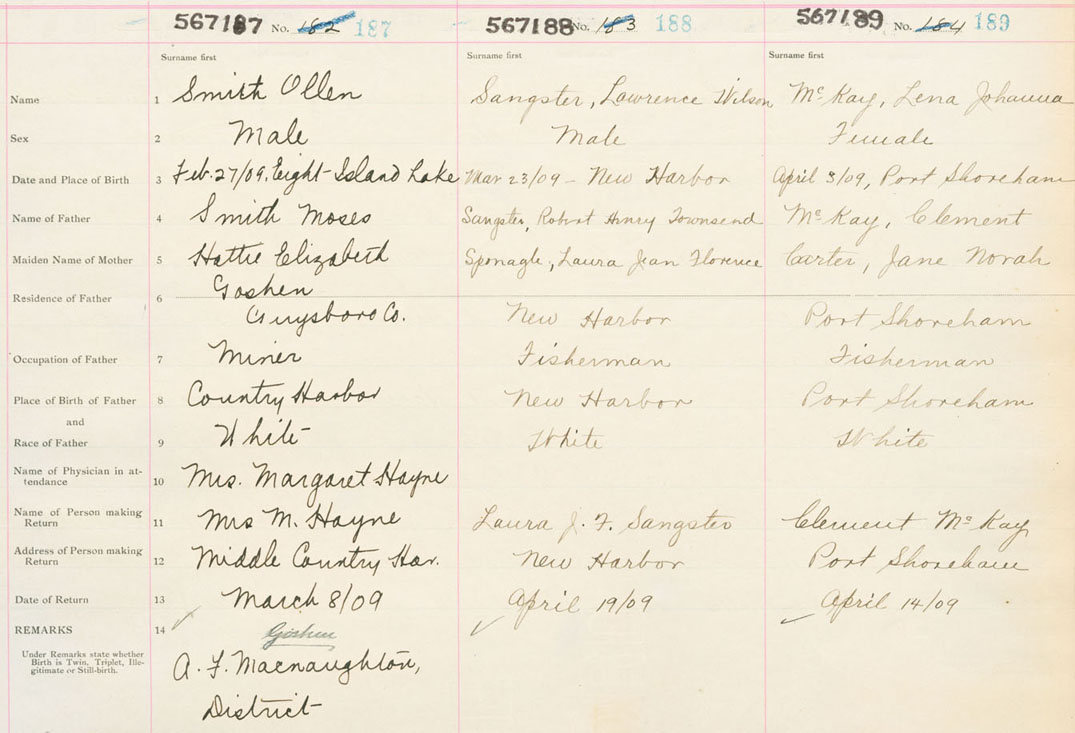 567187 No. 182 187 567188 No. 183 188 567189 No. 184 189
Surname first Surname first Surname first
Name 1 Smith Ollen Sangster, Lawrence Wilson McKay, Lena Johanna
Sex 2 Male Male Female
Date and Place of Birth 3 Feb. 27/09, Eight Island Lake Mar 23/09 - New Harbor April 3/09, Port Shoreham
Name of Father 4 Smith Moses Sangster, Robert Henry Townsend McKay, Clement
Maiden Name of Mother 5 Hattie Elizabeth Sponagle, Laura Jean Florence Carter, Jane Norah
Goshen
Residence of Father 6 Guysboro Co. New Harbor Port Shoreham
Occupation of Father 7 Miner Fisherman Fisherman
Place of Birth of Father 8 Country Harbor New Harbor Port Shoreham
and
Race of Father 9 White White White
Name of Physician in at-
tendance 10 Mrs. Margaret Hayne
Name of Person making
Return 11 Mrs M. Hayne Laura J. F. Sangster Clement McKay
Address of Person making
Return 12 Middle Country Har. New Harbor Port Shoreham
Date of Return 13 March 8/09 April 19/09 April 14/09
REMARKS 14 Goshen
Under Remarks state whether
Birth is Twin, Triplet, Ille-
gitimate or Still-birth.
A. F. Macnaughton,
District